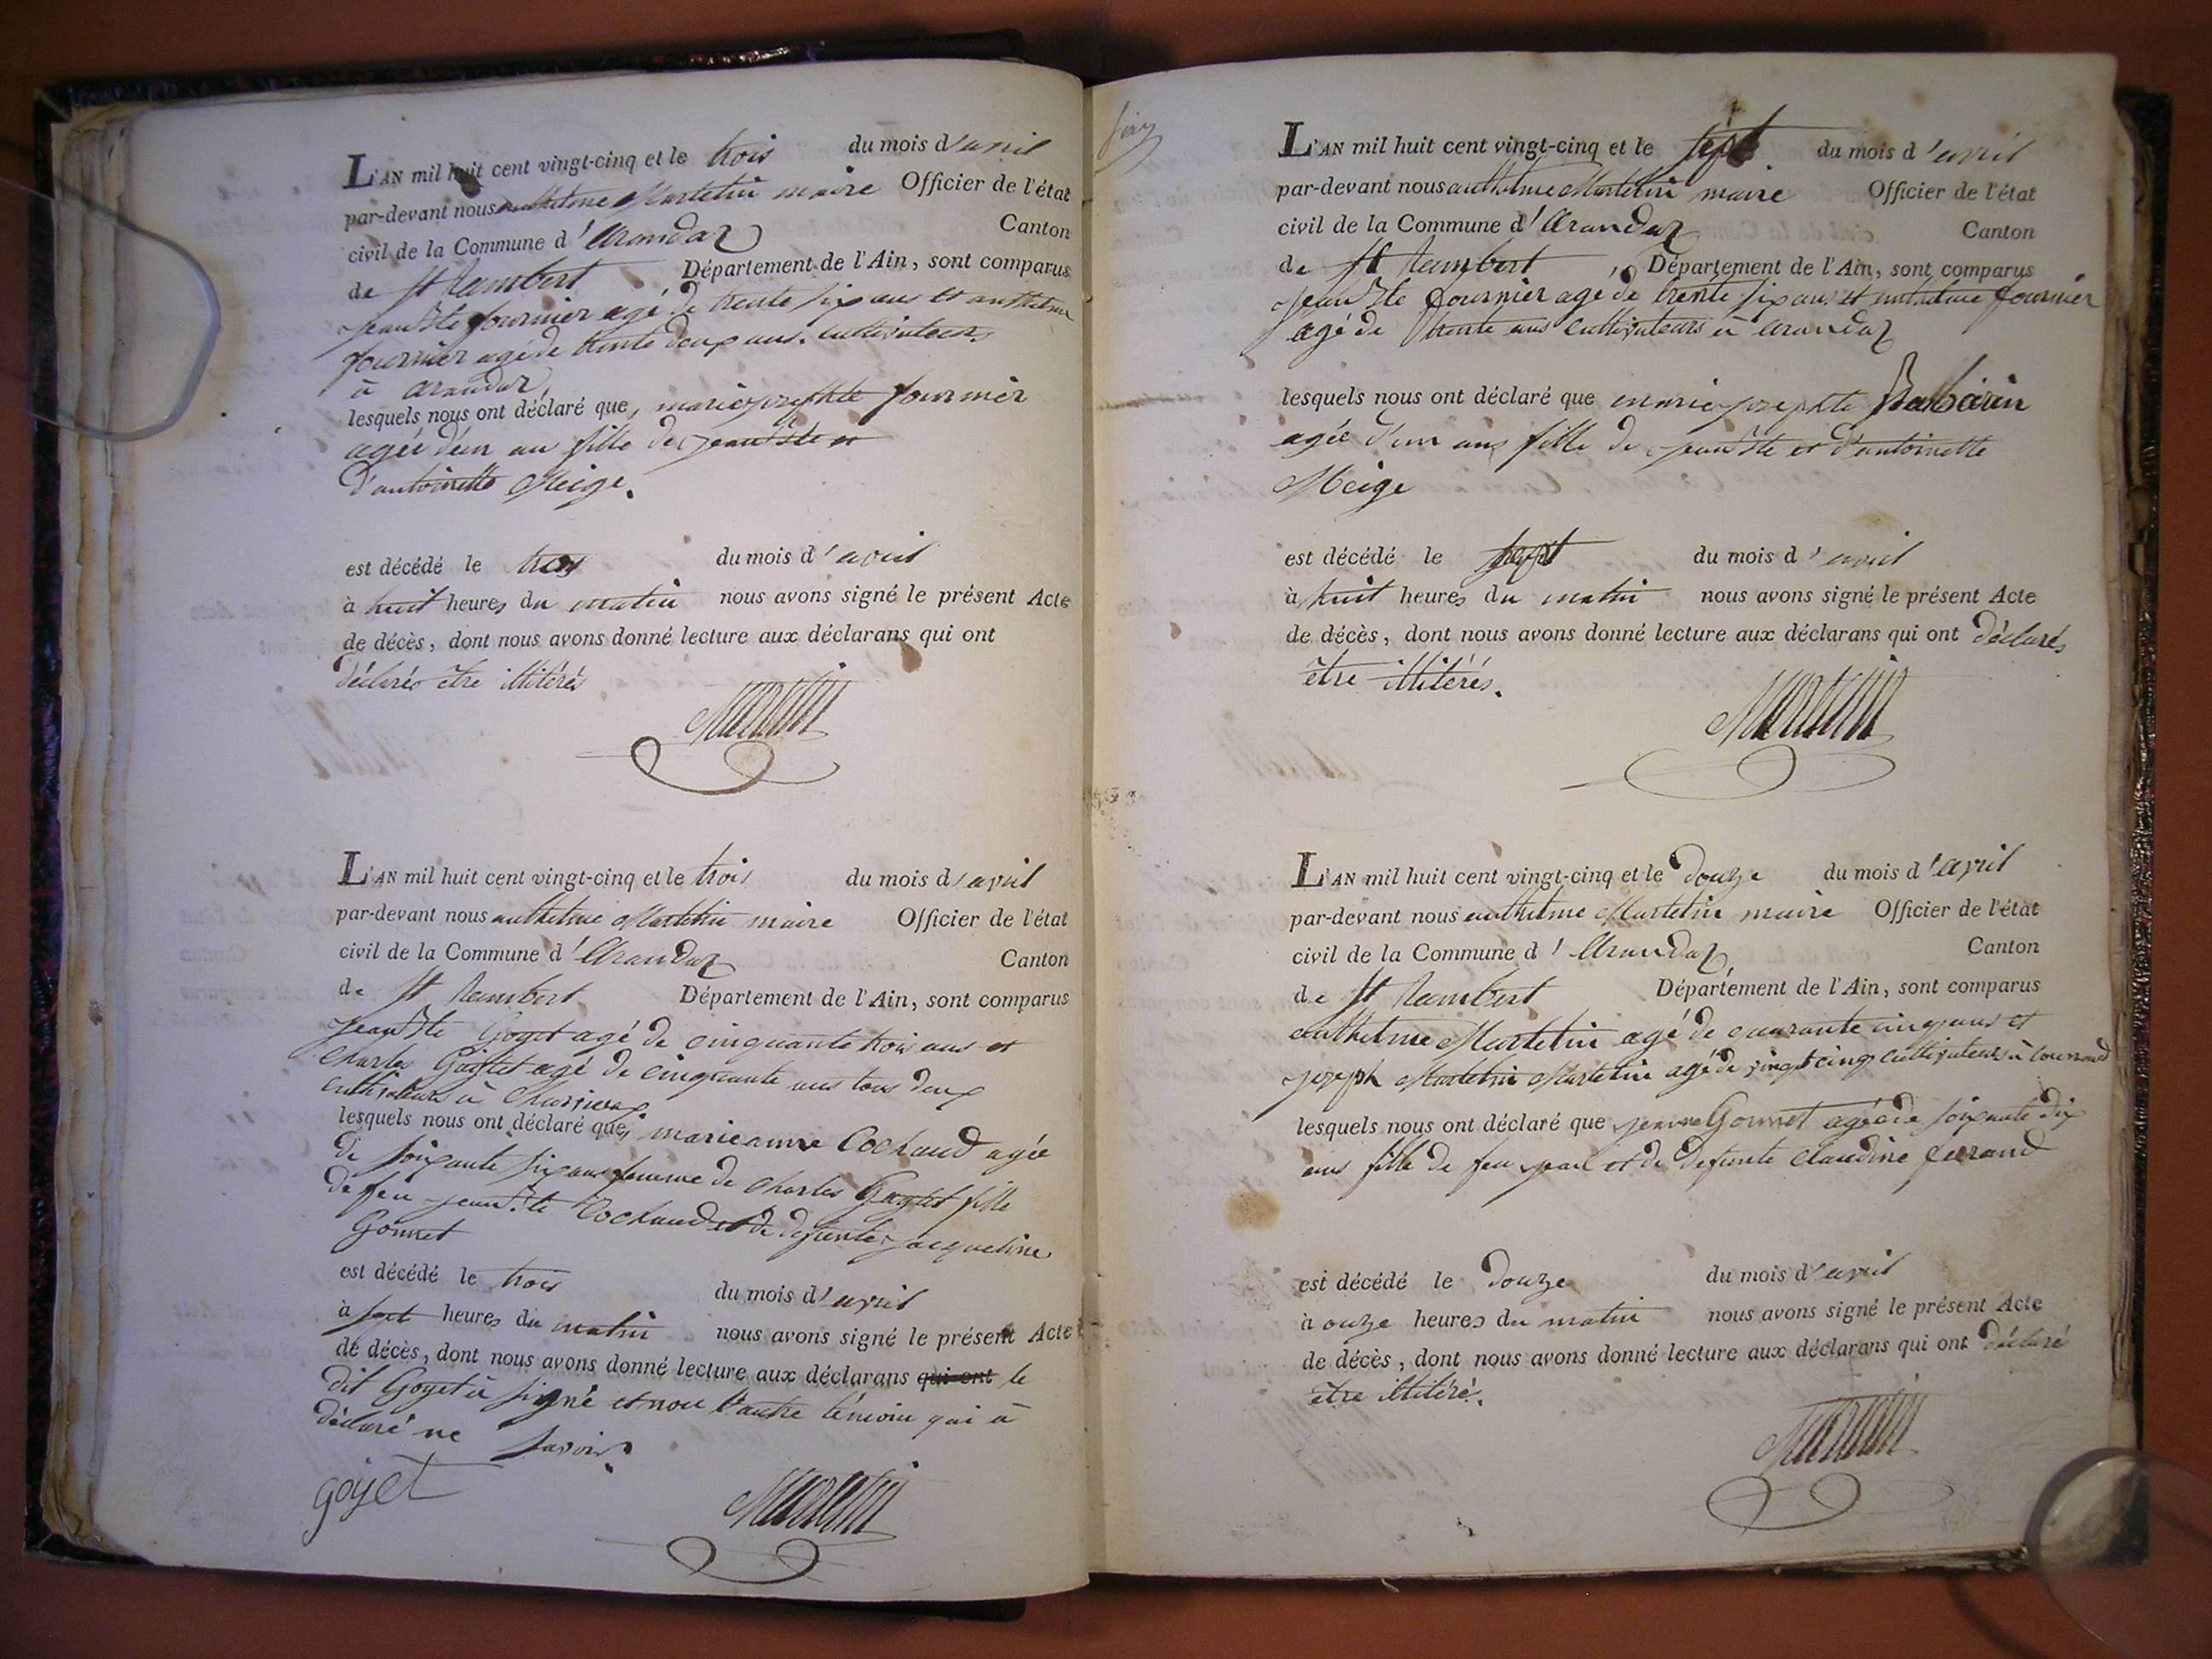 L'AN mil huit cent vingt-cinq et le trois du mois d'avril
par-devant nous anthelme Martelin maire Officier de l'état
civil de la Commune d'Arandaz Canton
de St Rambert Département de l'Ain, sont comparus
jean Bte fournier agé de trente six ans et anthelme
fournier agé de trente deux ans. cultivateurs
à arandaz,
lesquels nous ont déclaré que, marie josephte fournier
agée d'un an fille de jean Bte et
d'antoinette Meige.
est décédé le trois du mois d'avril
à huit heures du matin nous avons signé le présent Acte
de décès, dont nous avons donné lecture aux déclarans qui ont
déclarés etre illitérés
Martelin
L'AN mil huit cent vingt-cinq et le trois du mois d'avril
par-devant nous anthelme Martelin maire Officier de l'état
civil de la Commune d'Arandaz Canton
de St Rambert Département de l'Ain, sont comparus
jean Bte Goyet agé de cinquante trois ans et
charles agé de cinquante ans tous deux
cultivateurs à
lesquels nous ont déclaré que, marieanne Cochaud agée
de soixante six ans femme de charles fille
de feu jean Bte Cochaud et de defunte jacqueline
Gonnet
est décédé le trois du mois d'avril
à sept heures du matin nous avons signé le présent Acte
de décès, dont nous avons donné lecture aux déclarans qui ont le
dit Goyet à signé et non l'autre témoin qui à
déclaré ne savoir.
goyet
Martelin
L'AN mil huit cent vingt-cinq et le sept du mois d'avril
par-devant nous anthelme Martelin maire Officier de l'état
civil de la Commune d'Arandaz Canton
de St Rambert, Département de l'Ain, sont comparus
jean Bte fournier agé de trente six ans et anthelme fournier
agé de trente ans cultivateurs à arandaz
lesquels nous ont déclaré que marie josephte Babarin
agée d'un ans fille de jean Bte et d'antoinette
Meige
est décédé le sept du mois d'avril
à huit heures du matin nous avons signé le présent Acte
de décès, dont nous avons donné lecture aux déclarans qui ont déclarés
être illitérés.
Martelin
L'AN mil huit cent vingt-cinq et le douze du mois d'avril
par-devant nous anthelme Martelin maire Officier de l'état
civil de la Commune d'Arandaz Canton
de St Rambert Département de l'Ain, sont comparus
anthelme Martelin agé de quarante cinq ans et
joseph Martelin Martelin agé de vingt cinq cultivateurs à
lesquels nous ont déclaré que jeanne Gonnet agée de soixante dix
ans fille de feu et de defunte claudine ferrand
est décédé le douze du mois d'avril
à onze heures du matin nous avons signé le présent Acte
de décès, dont nous avons donné lecture aux déclarans qui ont déclaré
etre illitéré.
Martelin